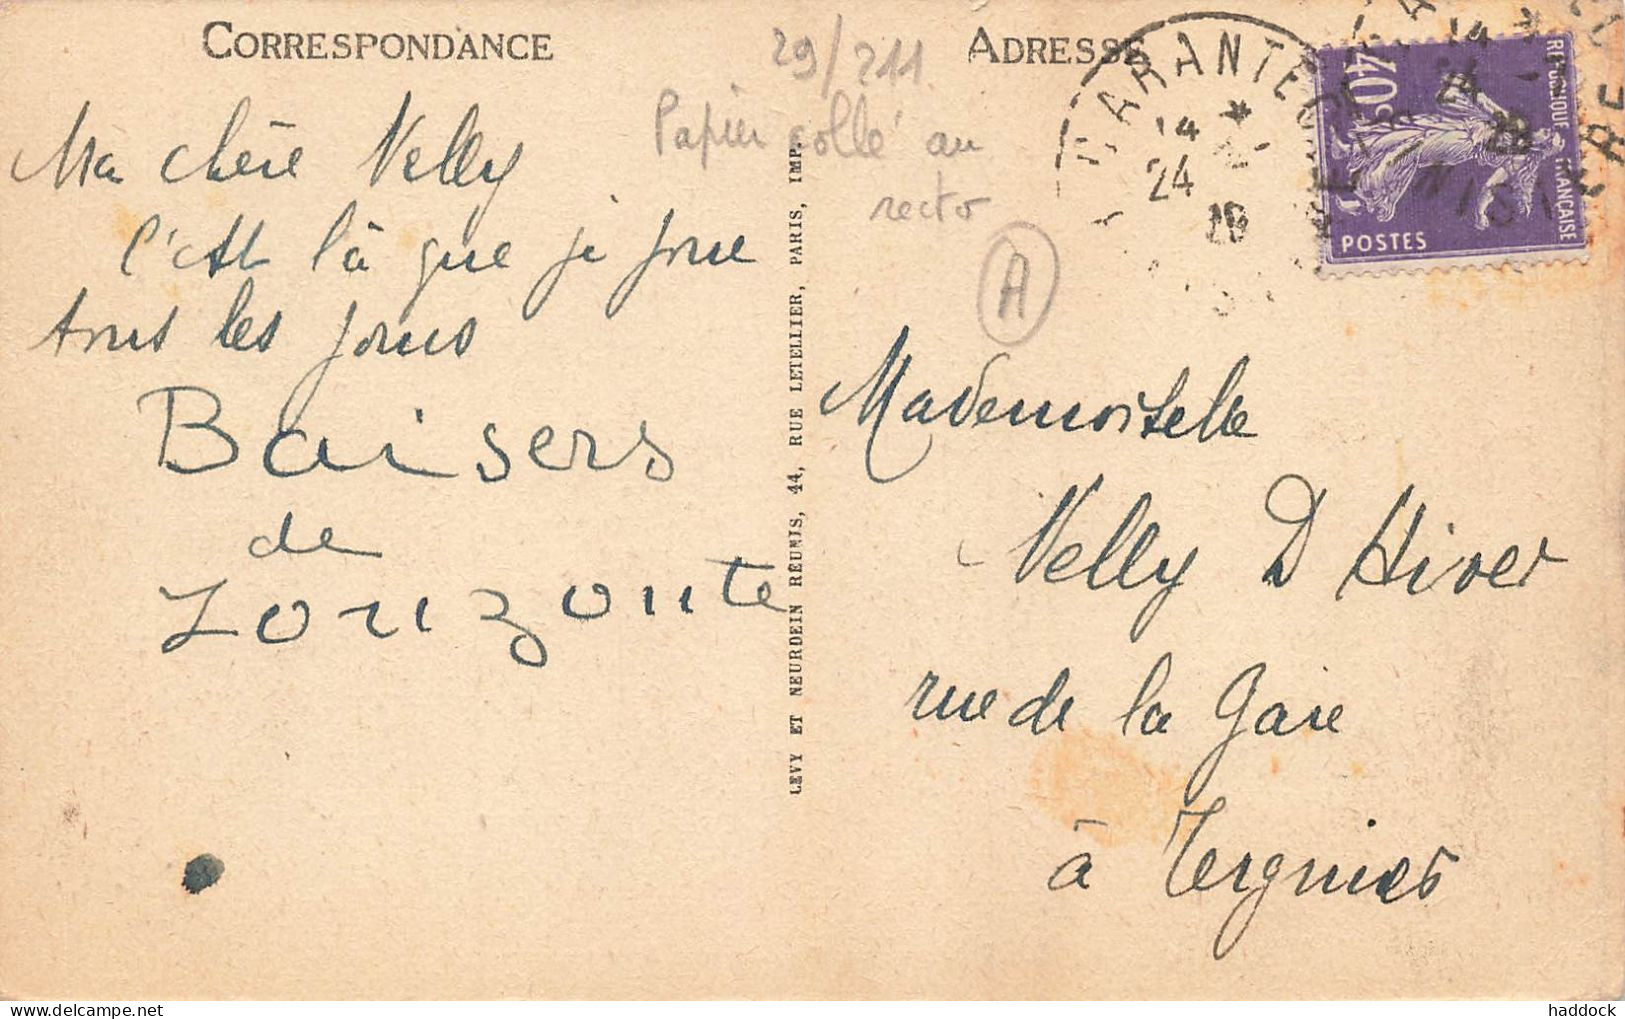 CORRESPONDANCE
Ma chère Nelly
c'est là que je joue
tous les jours
Baisers
de
Zouzoute
29/211
Papier collé au
recto
A
LEVY ET NEURDEIN RÉUNIS, 44, RUE LETELLIER, PARIS, IMP.
ADRESSE
14
24
REPUBLIQUE FRANÇAISE
40c
POSTES
Mademoiselle
Nelly D Hiver
rue de la Gare
à Tergnier
haddock